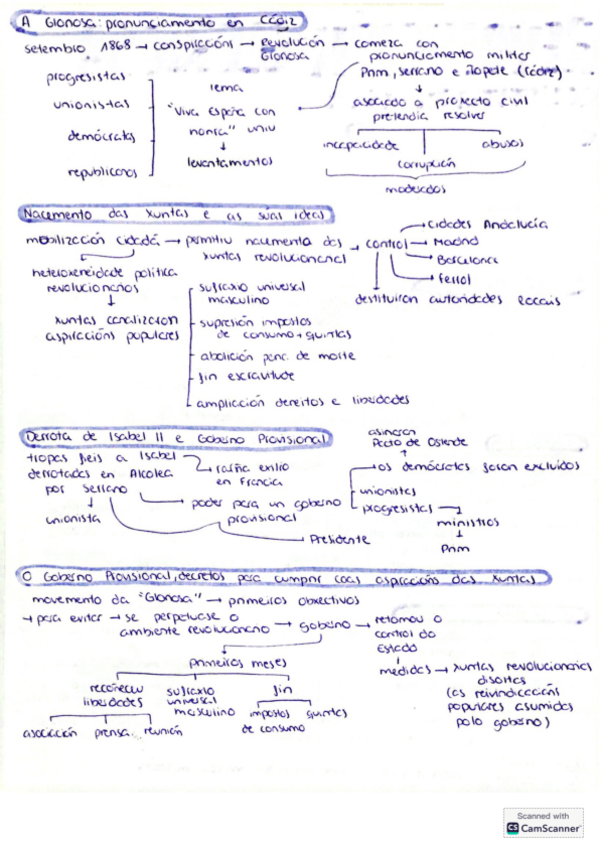 A Gloriosa: pronunciamento en Cádiz
setembro 1868 → conspiración → Revolución Gloriosa → comeza con pronunciamento militar
Prim, Serrano e Topete (Cádiz)
progresistas
unionistas
demócratas
republicanos
lema
"Viva España con honra" uniu
↓
levantamentos
asociado a proxecto civil
pretendía resolver
incapacidade
corrupción
abusos
moderados
Nacemento das Xuntas e as súas ideas
mobilización cidadá → permitiu nacemento das xuntas revolucionarias → control
→ cidades Andalucía
→ Madrid
→ Barcelona
→ Ferrol
destituiron autoridades locais
heteroxeneidade política
revolucionarios
↓
xuntas canalizaron
aspiracións populares
sufraxio universal
masculino
supresión impostos
de consumo + quintas
abolición pena de morte
fin escravitude
ampliación dereitos e liberdades
Derrota de Isabel II e Goberno Provisional
tropas fieis a Isabel
derrotadas en Alcolea
por Serrano
↓
unionista
→ raíña exilio
en Francia
→ poder para un goberno
provisional
→ Presidente
asinaron
Pacto de Ostende
↑
os demócratas foron excluídos
unionistas
progresistas
ministros
↓
Prim
O Goberno Provisional, decretos para cumprir coas aspiracións das xuntas
movemento da "Gloriosa" → primeiros obxectivos
→ para evitar → se perpetuase o
ambiente revolucionario → goberno → retomou o
control do
Estado
↓
medidas → xuntas revolucionarias
disoltas
(as reivindicacións
populares asumidas
polo goberno)
primeiros meses
recoñeceu
liberdades
asociación prensa reunión
sufraxio
universal
masculino
fin
impostos
de consumo
quintas
Scanned with
CS CamScanner